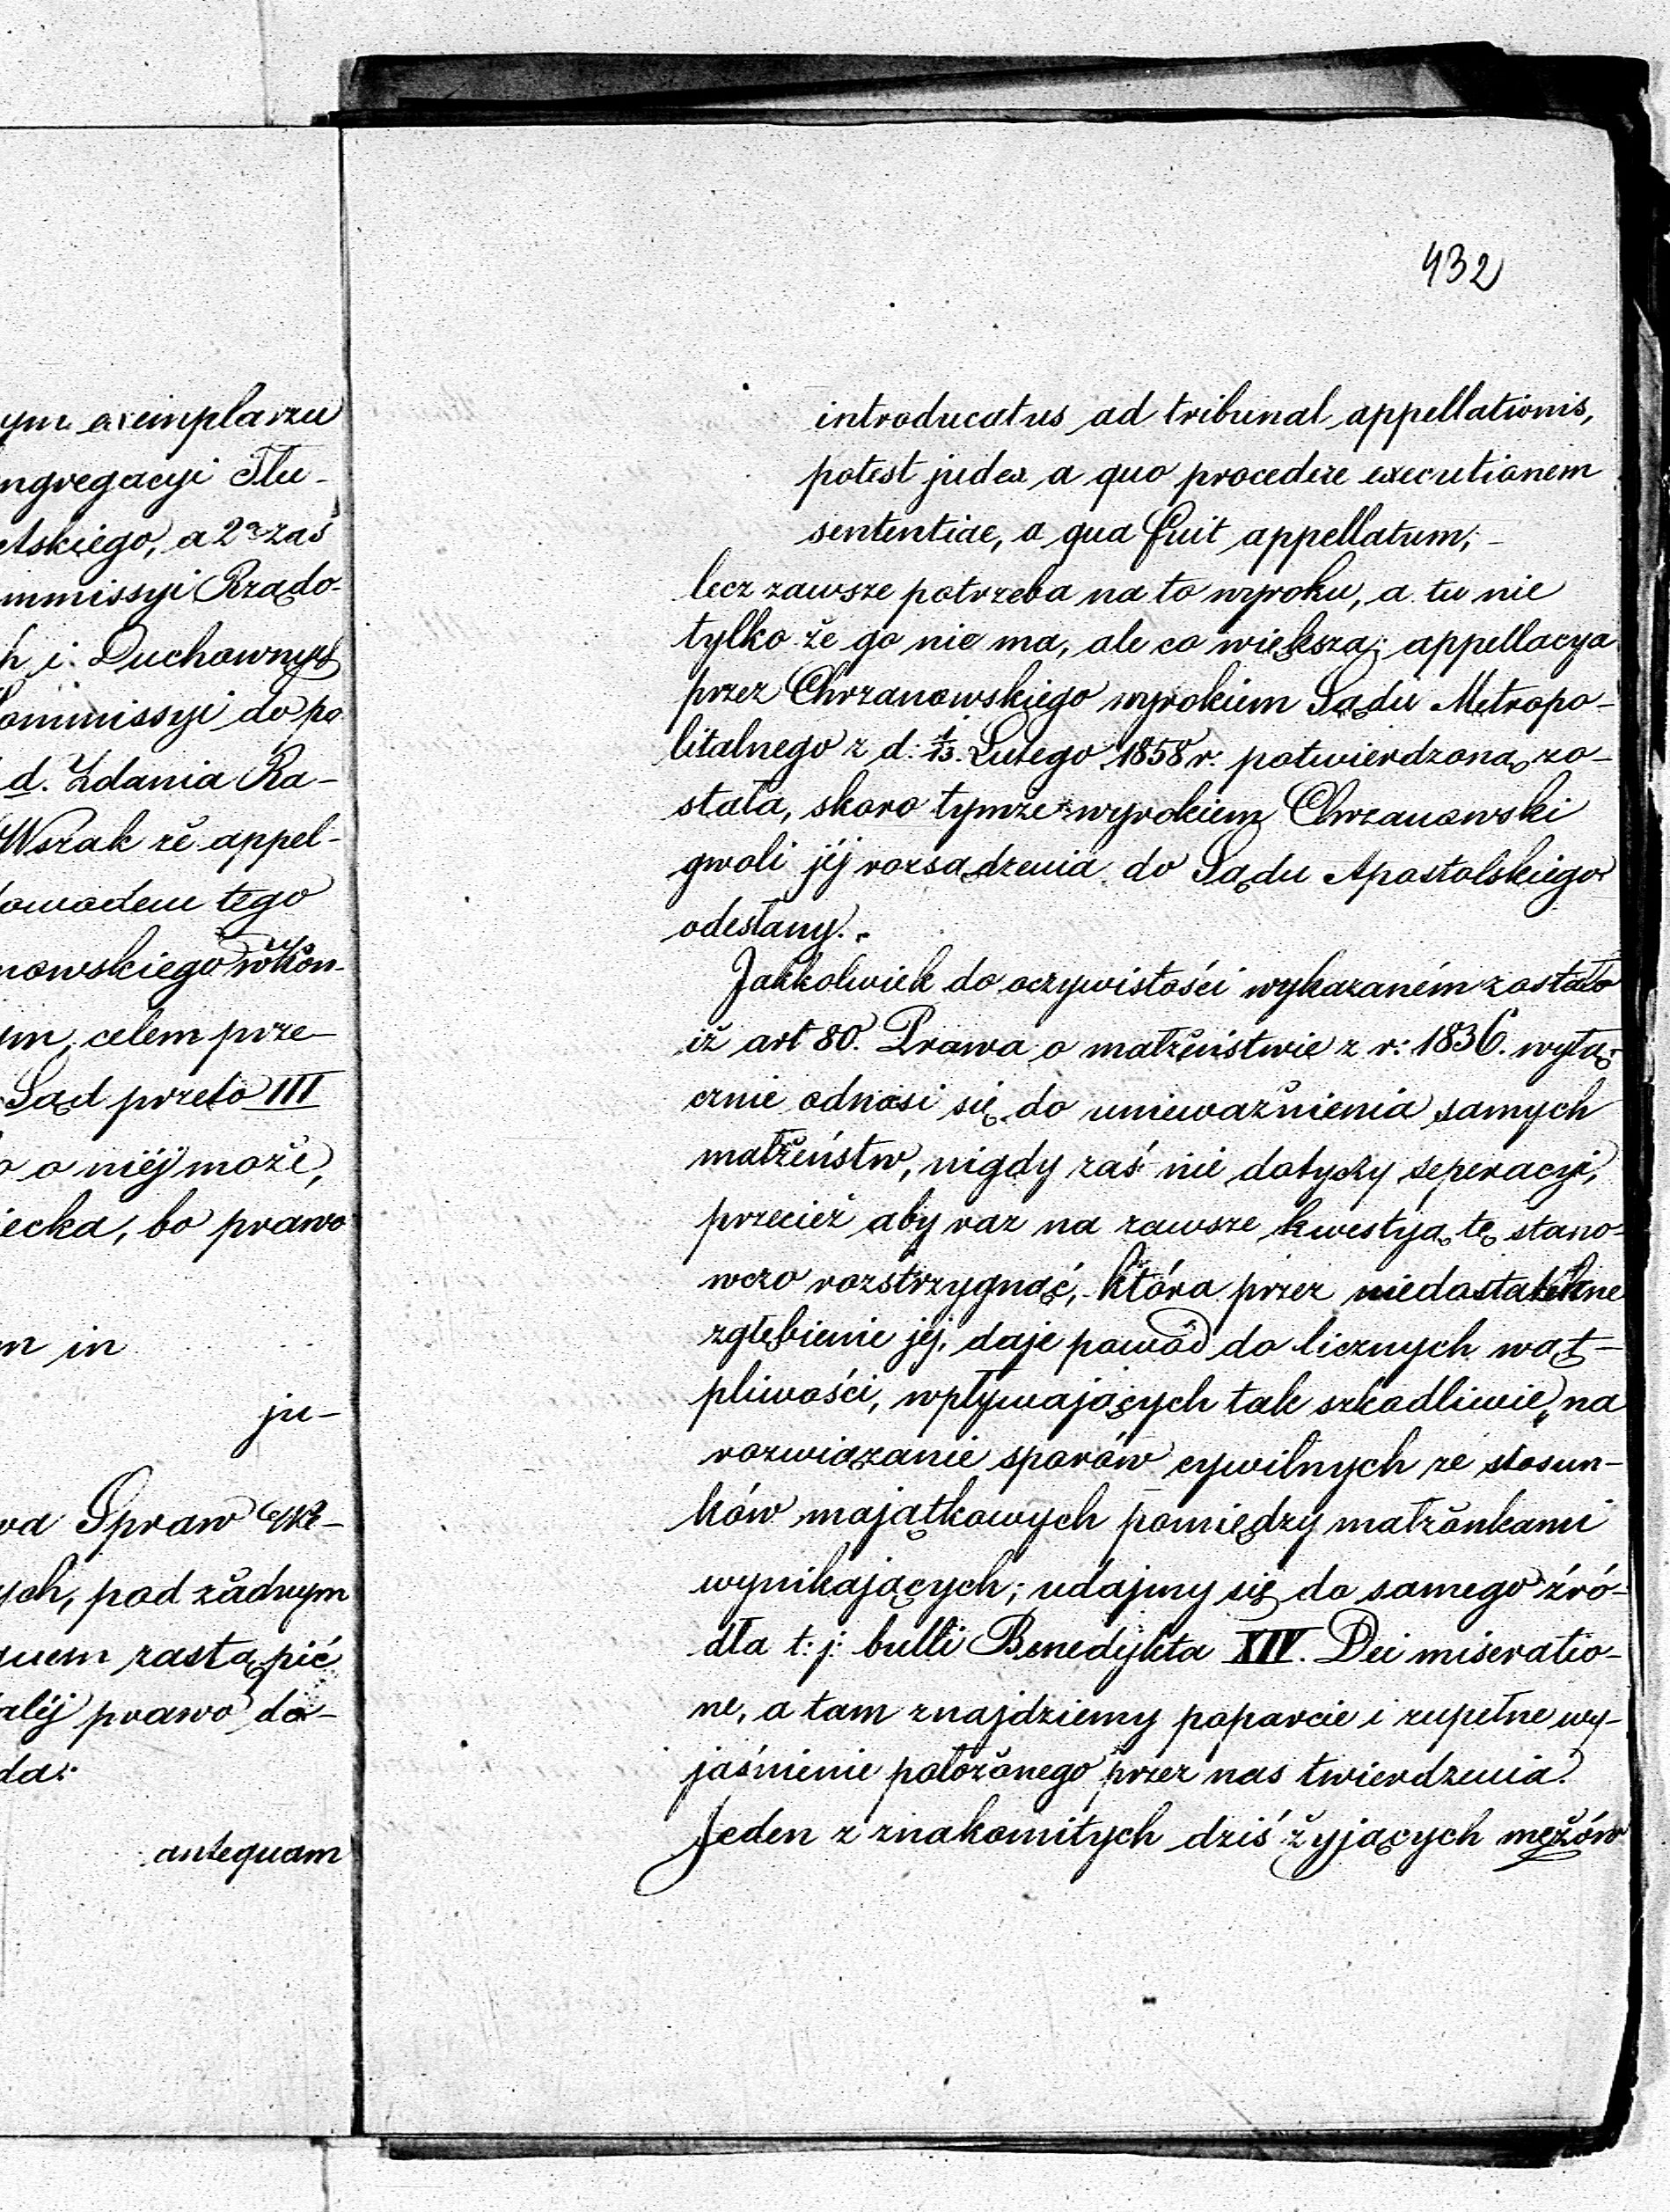 ym exemplarzu
ngregacyi Tłu-
etskiego, a 2a zaś
mmissyi Rządo-
h i Duchownych
Kommissyi do po
d. Zdania Ra-
Wszak że appel-
dowodem tego
nowskiego
ym, celem prze-
Sąd przeto III
o o niéj może,
iecka, bo prawo
m in
ju-
wa Spraw
ych, pod żadnym
zastąpić
aléj prawo do-
da:
antequam
432
introducatus ad tribunal appellationis,
potest judex a quo procedere executionem
sententiae, a qua fuit appellatum; –
lecz zawsze potrzeba na to wyroku, a tu nie
tylko że go nie ma, ale co większa; appellacya
przez Chrzanowskiego wyrokiem Sądu Metropo-
litalnego z d: 1/13. Lutego 1858 r. potwierdzoną zo-
stała, skoro tymże wyrokiem Chrzanowski
gwoli jéj rozsądzenia do Sądu Apostolskiego
odesłany.
Jakkolwiek do oczywistości wykazaném zostało
iż art 80. Prawa o małżeństwie z r: 1836. wyłą-
cznie odnosi się do unieważnienia samych
małżeństw, nigdy zaś nie dotyczy seperacyi,
przecież aby raz na zawsze kwestyą tę stano-
wczo rozstrzygnąć, która przez niedostateczne
zgłębienie jéj, daje powód do licznych wąt-
pliwości, wpływających tak szkodliwie na
rozwiązanie sporów cywilnych ze stosun-
ków majątkowych pomiędzy małżonkami
wynikających; udajmy się do samego źró-
dła t: j: bulli Benedykta XIV. Dei miseratio-
ne, a tam znajdziemy poparcie i zupełne wy-
jaśnienie położonego przez nas twierdzenia.
Jeden z znakomitych dziś żyjących mężów